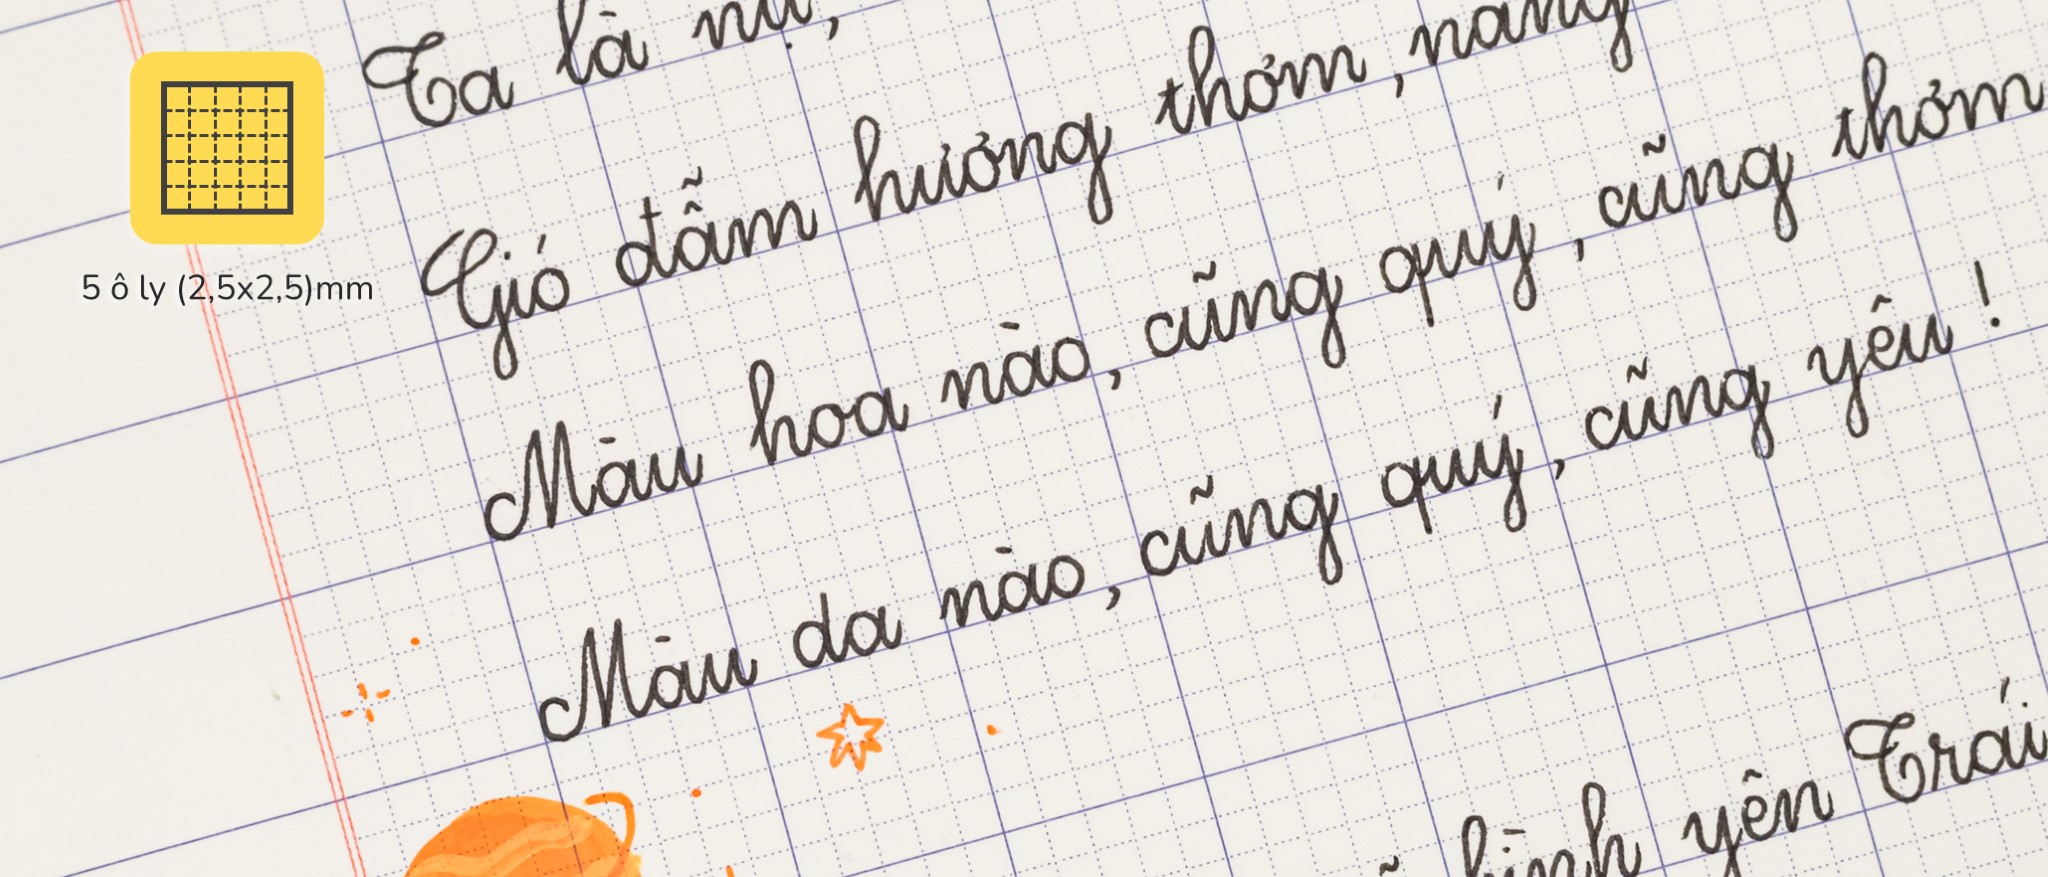 5 ô ly (2,5x2,5)mm
Ta là nụ,
Gió đẫm hương thơm,
Màu hoa nào, cũng quý, cũng thơm
Màu da nào, cũng quý, cũng yêu !
yên Trái